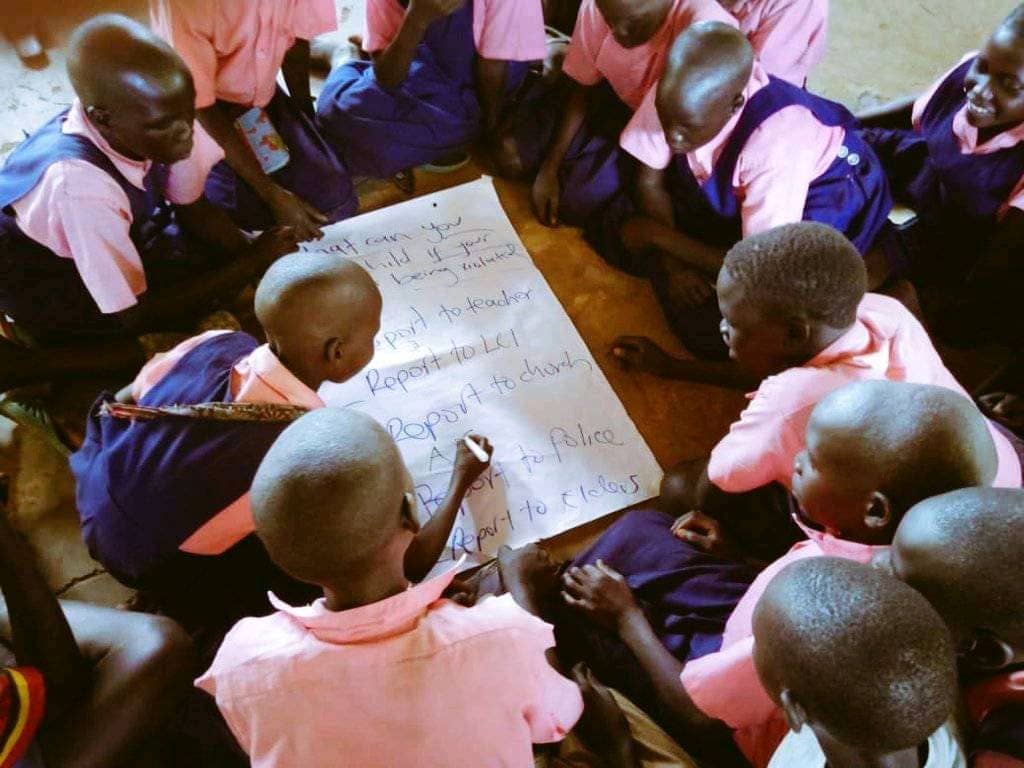 hat can you
hild if your
being violated
port to teacher
Report to LC1
Report to church
A
Report to Police
Report to Elders